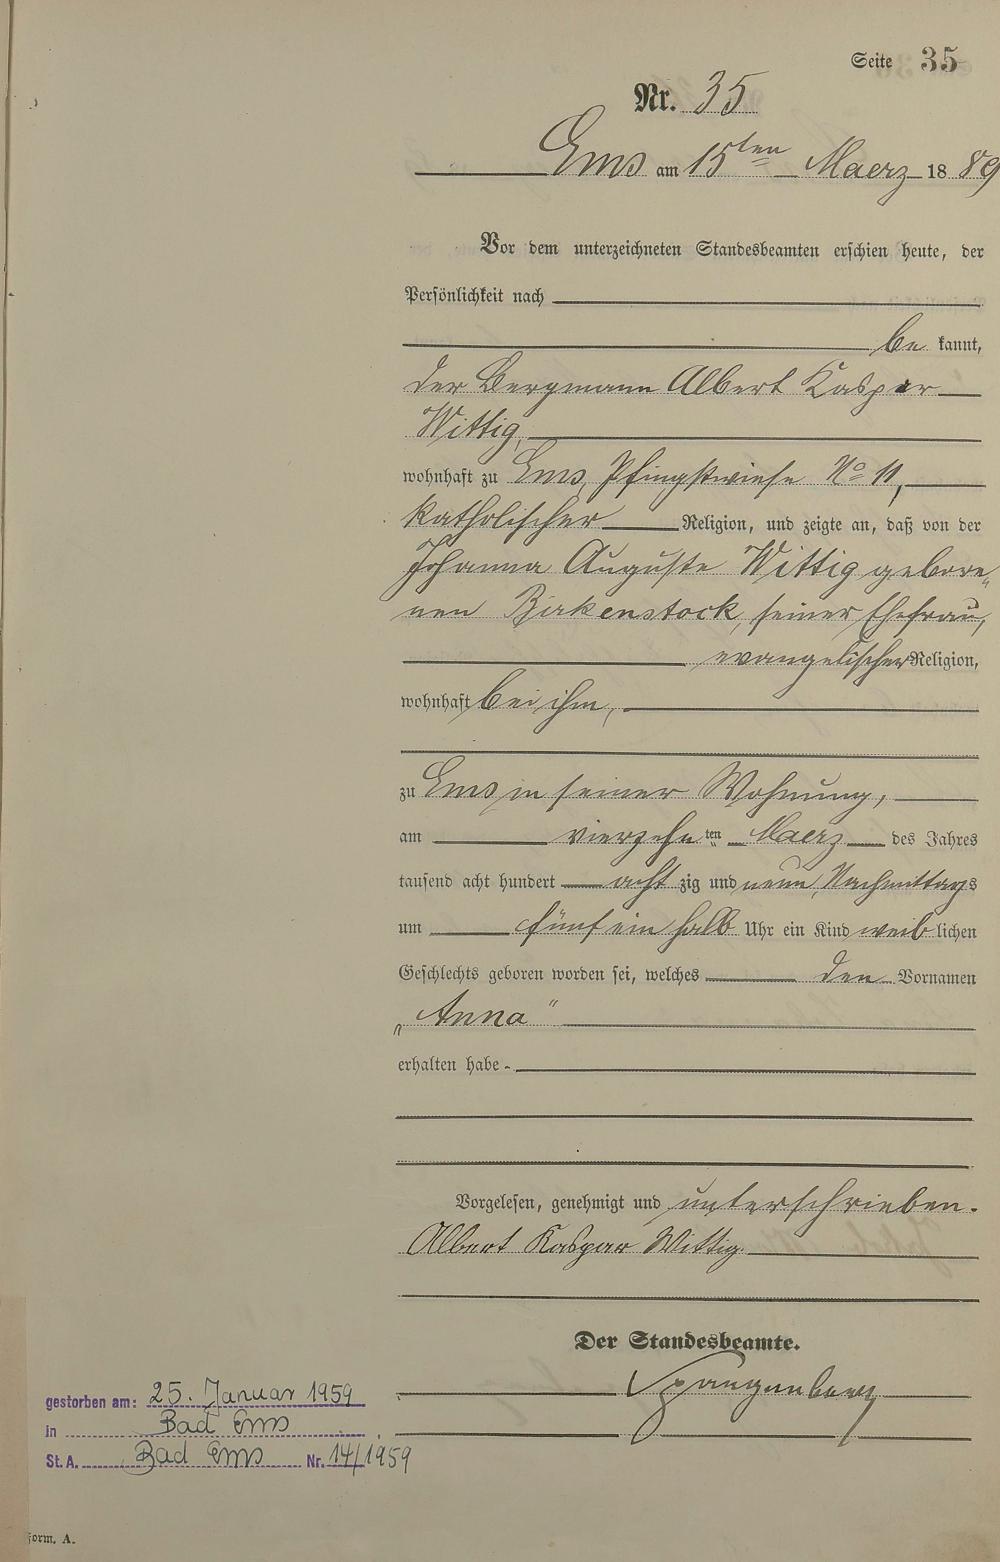 Seite 35
Nr. 35
Ems am 15ten Maerz 1889
Vor dem unterzeichneten Standesbeamten erschien heute, der
Persönlichkeit nach
be kannt,
der Bergmann Albert Kaspar
Wittig,
wohnhaft zu Ems, Pfingstwiese No 11,
katholischer Religion, und zeigte an, daß von der
Johanna Auguste Wittig gebore„
nen Birkenstock, seiner Ehefrau,
evangelischer Religion,
wohnhaft bei ihm,
zu Ems in seiner Wohnung,
am vierzehn ten Maerz des Jahres
tausend acht hundert acht zig und neun, Nachmittags
um fünf ein halb Uhr ein Kind weib lichen
Geschlechts geboren worden sei, welches den Vornamen
„Anna"
erhalten habe
Vorgelesen, genehmigt und unterschrieben.
Albert Kaspar Wittig.
Der Standesbeamte.
Spangenberg
gestorben am: 25. Januar 1959
in Bad Ems
St. A. Bad Ems Nr. 14/1959
Form. A.